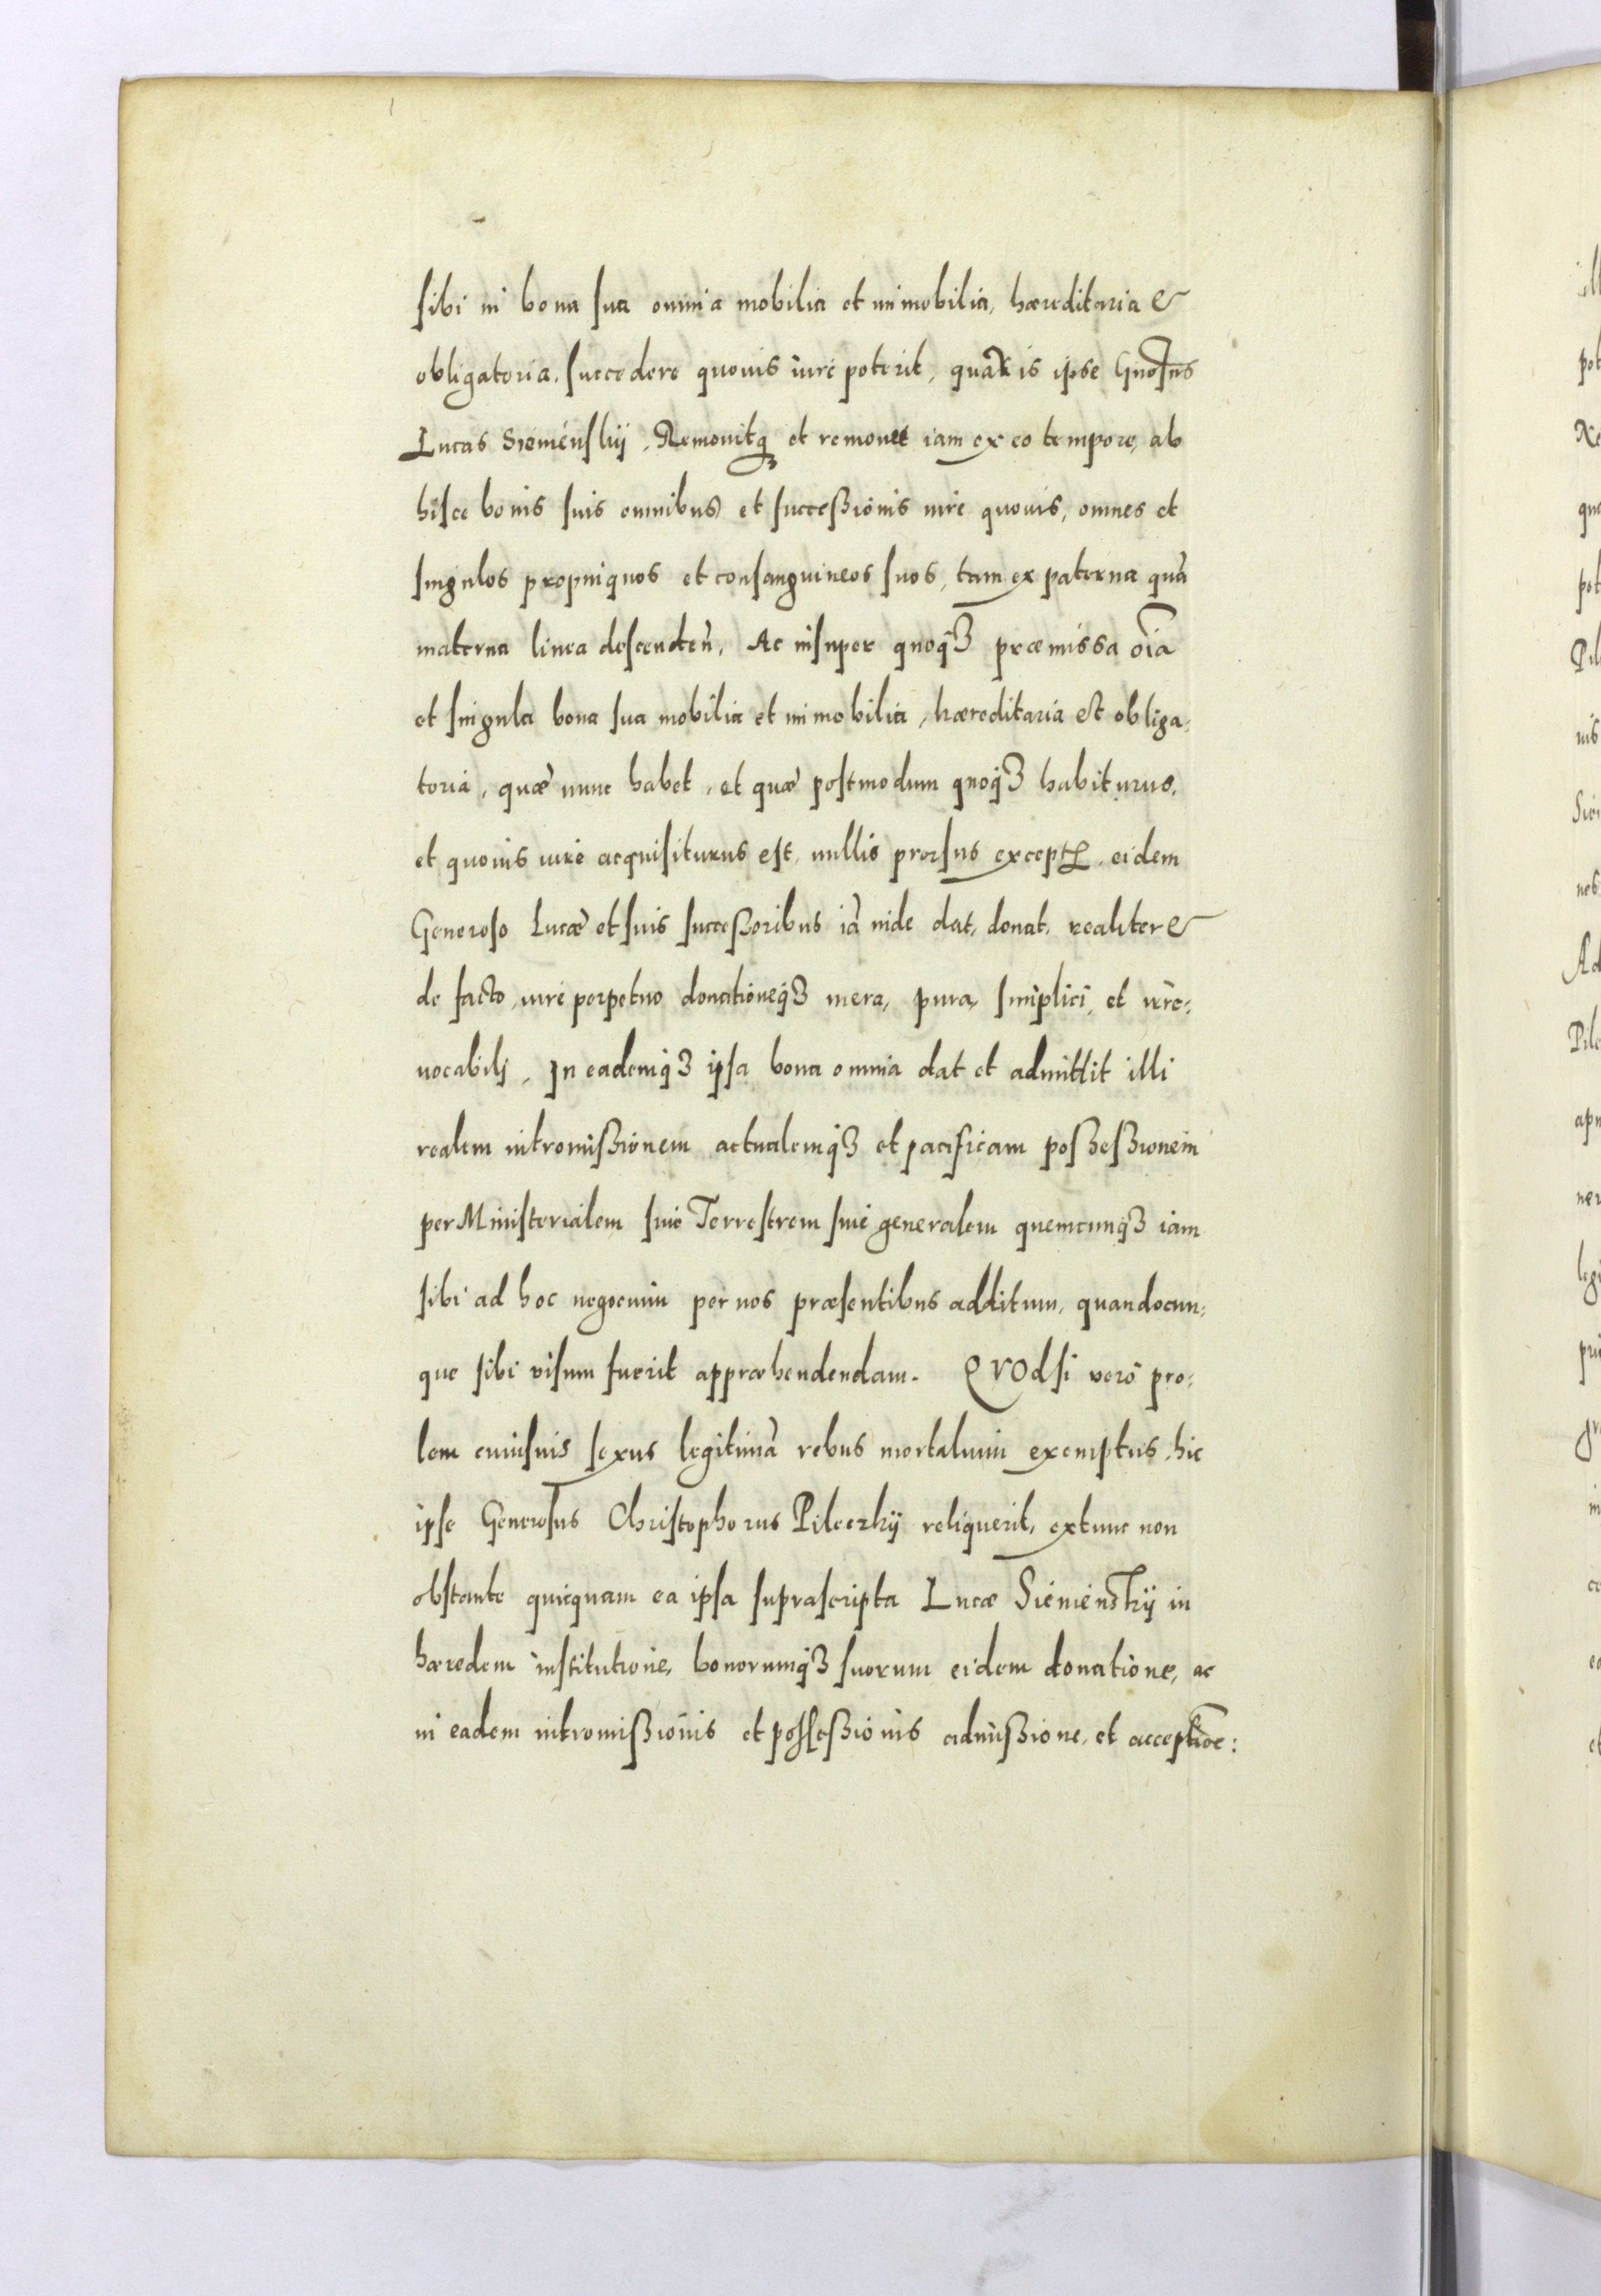 sibi in bona sua omnia mobilia et immobilia, hæreditaria &
obligatoria, succedere quouis iure poterit, quàm is ipse Gnosus
Lucas Sienienskij. Remouitq; et remouet iam ex eo tempore, ab
hisce bonis suis omnibus et successionis iure quouis, omnes et
singulos propinquos et consanguineos suos, tam ex paterna quà
materna linea descenden̄. Ac insuper quoq3 præmissa oīa
et singula bona sua mobilia et immobilia, hæreditaria et obliga,
toria, quæ nunc habet, et quæ postmodum quoq3 habiturus,
et quouis iure acquisiturus est, nullis prorsus except, eidem
Generoso Lucæ et suis successoribus iā inde dat, donat, realiter &
de facto, iure perpetuo donationeq3 mera, pura, simplici, et irre,
uocabili, In eademq3 ipsa bona omnia dat et admittit illi
realem intromissionem actualemq3 et pacificam possessionem
per Ministerialem siue Terrestrem siue generalem quemcunq3 iam
sibi ad hoc negocium per nos præsentibus additum, quandocun,
que sibi visum fuerit appræhendendam. QVOdsi verò pro,
lem cuiusuis sexus legitimā rebus mortalium exemptus, hic
ipse Generosus Christophorus Pileczkij reliquerit, extunc non
obstante quicquam ea ipsa suprascripta Lucæ Sienienskij in
hæredem institutione, bonorumq3 suorum eidem donatione, ac
in eadem intromissionis et possessionis admissione, et acceptiōe:
ill
pot
pot
Pil
uis
Sie
Ad
Pile
ap
legi
et